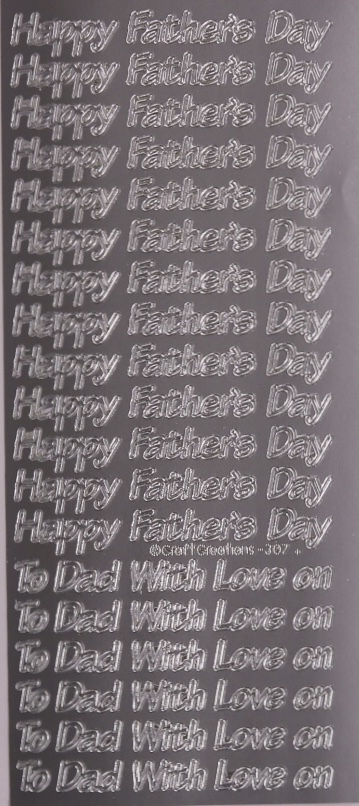 Happy Father's Day
Happy Father's Day
Happy Father's Day
Happy Father's Day
Happy Father's Day
Happy Father's Day
Happy Father's Day
Happy Father's Day
Happy Father's Day
Happy Father's Day
Happy Father's Day
Happy Father's Day
Happy Father's Day
©Craft Creations - 307 +
To Dad With Love on
To Dad With Love on
To Dad With Love on
To Dad With Love on
To Dad With Love on
To Dad With Love on